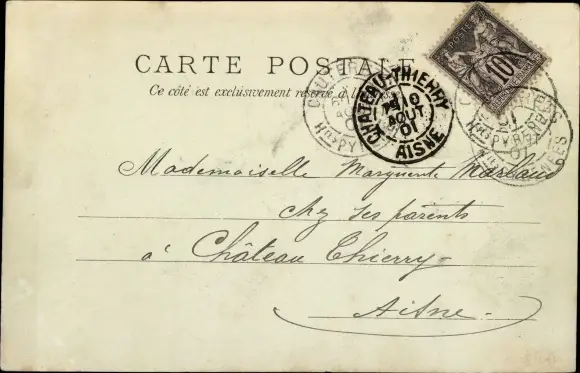 CARTE POSTALE
Ce côté est exclusivement réservé à
POSTE
10
CHATEAU-THIERRY
10
AOUT
01
AISNE
Htes PYRÉNÉES
Mademoiselle Marguerite
chez ses parents
à Château Thierry -
Aisne -